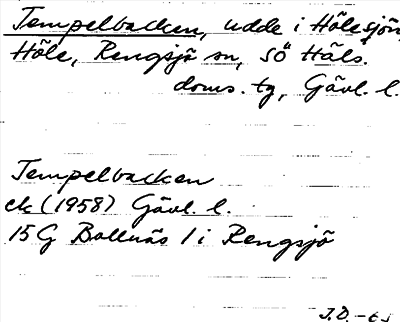 Tempelbacken, udde i Hölesjön,
Höle, Rengsjö sn, SÖ Häls.
doms. tg, Gävl. l.
Tempelbacken
ek (1958) Gävl. l.
15G Bollnäs 1 i Rengsjö
J.D. -65